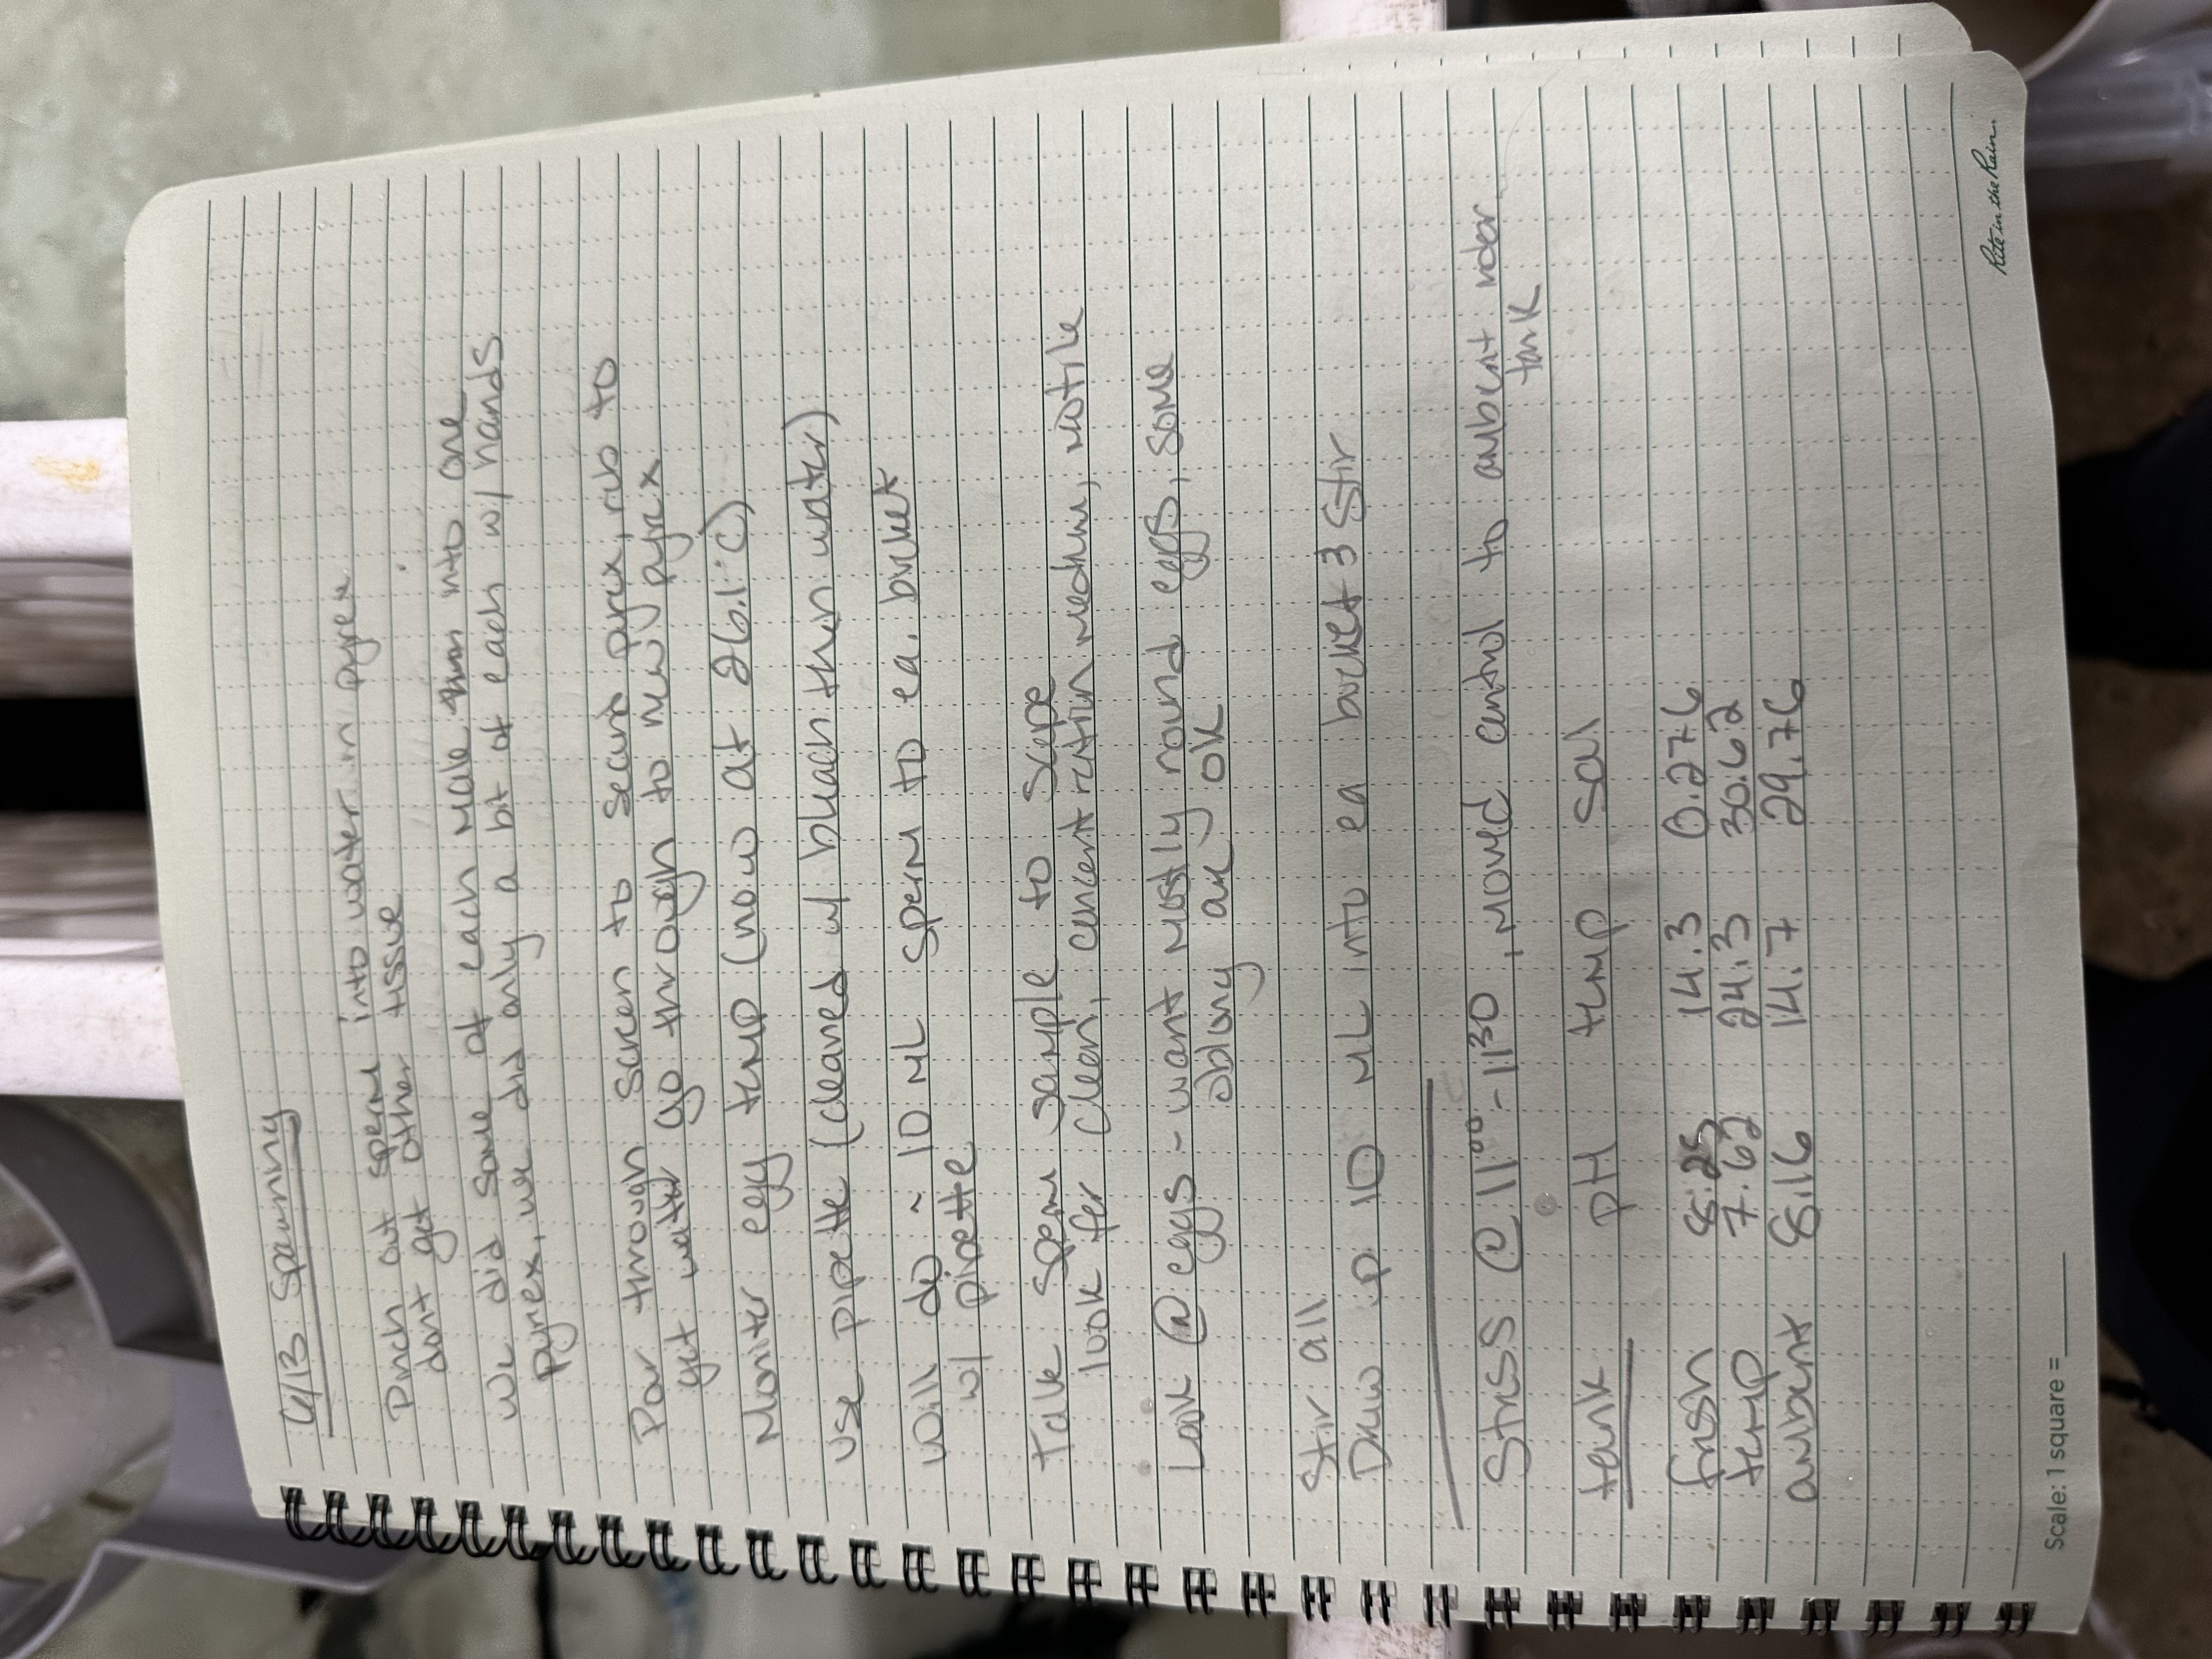 6/13 Spawning
Pinch out sperm into water in pyrex
dont get other tissue
We did some of each male into one
pyrex, we did only a bit of each w/ hands
Pour through screen to second pyrex, rub to
get water go through to new pyrex
Moniter egg temp (now at 26.1°C)
Use pipette (cleaned w/ bleach then water)
Will do ~ 10 mL sperm to ea. bucket
w/ pipette
Take sperm sample to scope
look for clean, concentration medium, motile
Look @ eggs - want mostly round eggs, some
oblong are ok
Stir all
Draw up 10 mL into ea bucket & Stir
Stress @ 11⁰⁰-11³⁰, moved control to ambient
tank
tank pH temp sal
fresh 8.25 14.3 0.276
temp 7.62 24.3 30.62
ambient 8.16 14.7 29.76
Rite in the Rain.
Scale: 1 square =